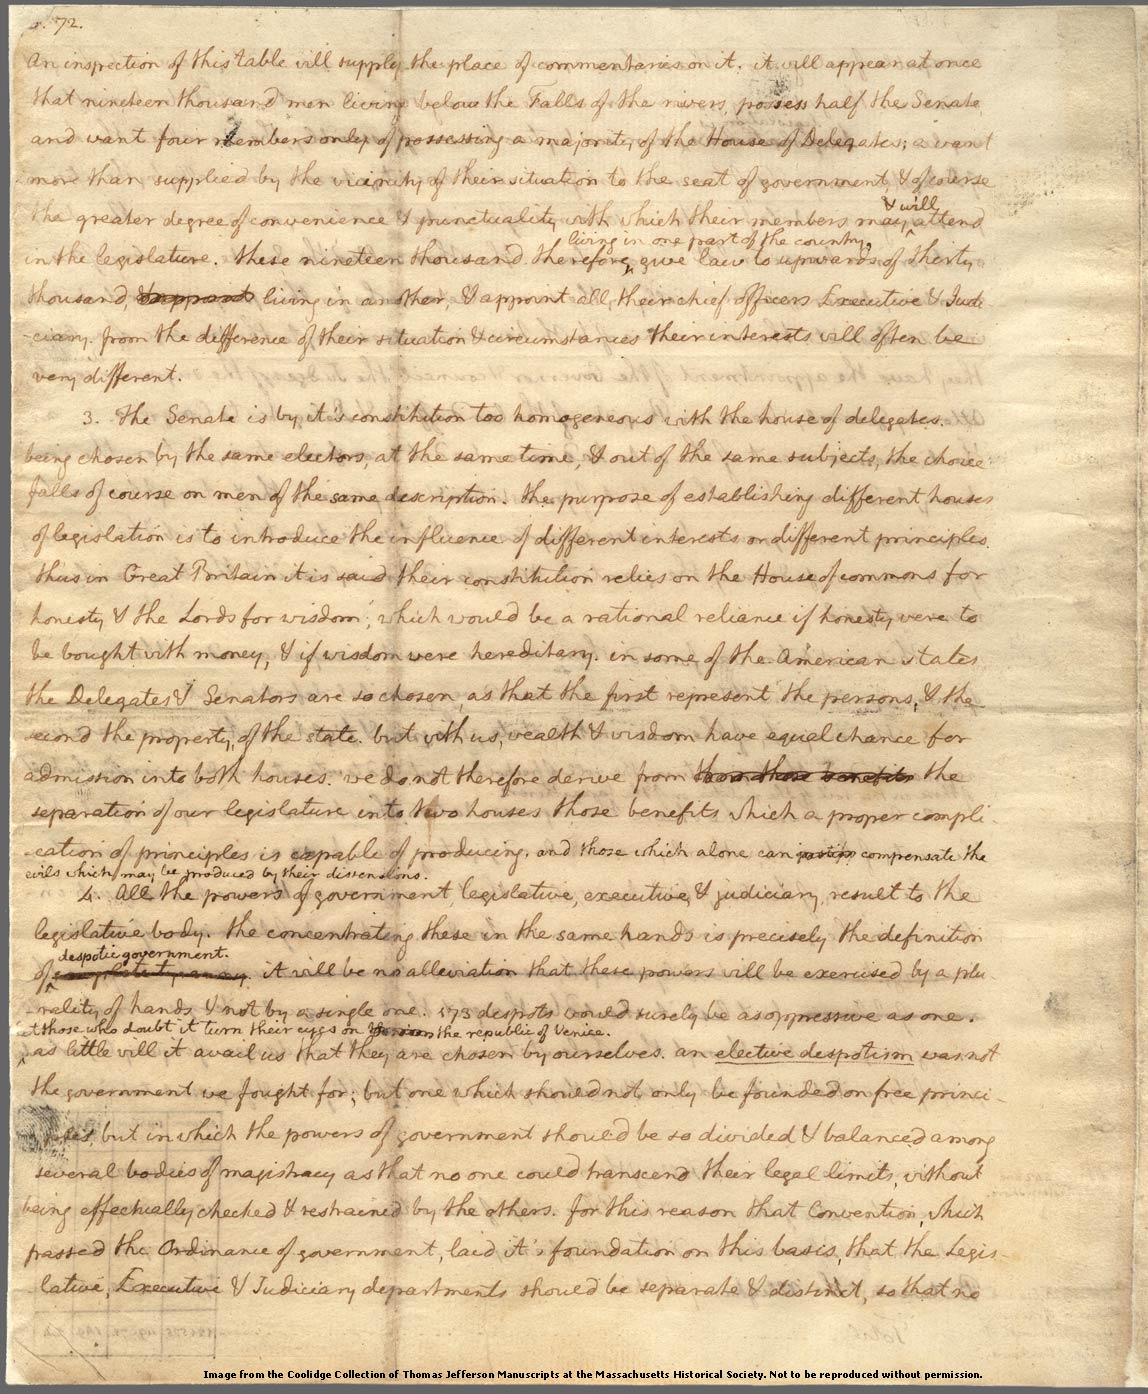 p. 72.
An inspection of this table will supply the place of commentaries on it. it will appear at once
that nineteen thousand men living below the Falls of the rivers, possess half the Senate
and want four members only of possessing a majority of the House of Delegates; a want
more than supplied by the vicinity of their situation to the seat of government, & of course
the greater degree of convenience & punctuality with which their members may & will attend
living in one part of the country,
in the legislature. these nineteen thousand therefore, give law to upwards of thirty
thousand, living in another, & appoint all their chief officers Executive & Judi-
-ciary. from the difference of their situation & circumstances their interests will often be
very different.
3. The Senate is by it's constitution too homogeneous with the house of delegates.
being chosen by the same electors, at the same time, & out of the same subjects, the choice
falls of course on men of the same description. the purpose of establishing different houses
of legislation is to introduce the influence of different interests or different principles.
thus in Great Britain it is said their constitution relies on the House of commons for
honesty & the Lords for wisdom; which would be a rational reliance if honesty were to
be bought with money, & if wisdom were hereditary. in some of the American states
the Delegates & Senators are so chosen, as that the first represent the persons, & the
second the property, of the state. but with us, wealth & wisdom have equal chance for
admission into both houses. we do not therefore derive from those benefits the
separation of our legislature into two houses those benefits which a proper compli-
-cation of principles is capable of producing. and those which alone can compensate the
evils which may be produced by their dissensions.
4. All the powers of government, legislative, executive, & judiciary, result to the
legislative body. the concentrating these in the same hands is precisely the definition
despotic government.
of it will be no alleviation that these powers will be exercised by a plu
-rality of hands & not by a single one. 173 despots would surely be as oppressive as one.
let those who doubt it turn their eyes on the republic of Venice.
as little will it avail us that they are chosen by ourselves. an elective despotism was not
the government we fought for; but one which should not only be founded on free princi-
-ples, but in which the powers of government should be so divided & balanced among
several bodies of magistracy as that no one could transcend their legal limits, without
being effectually checked & restrained by the others. for this reason that Convention, which
passed the Ordinance of government, laid it's foundation on this basis, that the Legis-
lative, Executive & Judiciary departments should be separate & distinct, so that no
Image from the Coolidge Collection of Thomas Jefferson Manuscripts at the Massachusetts Historical Society. Not to be reproduced without permission.